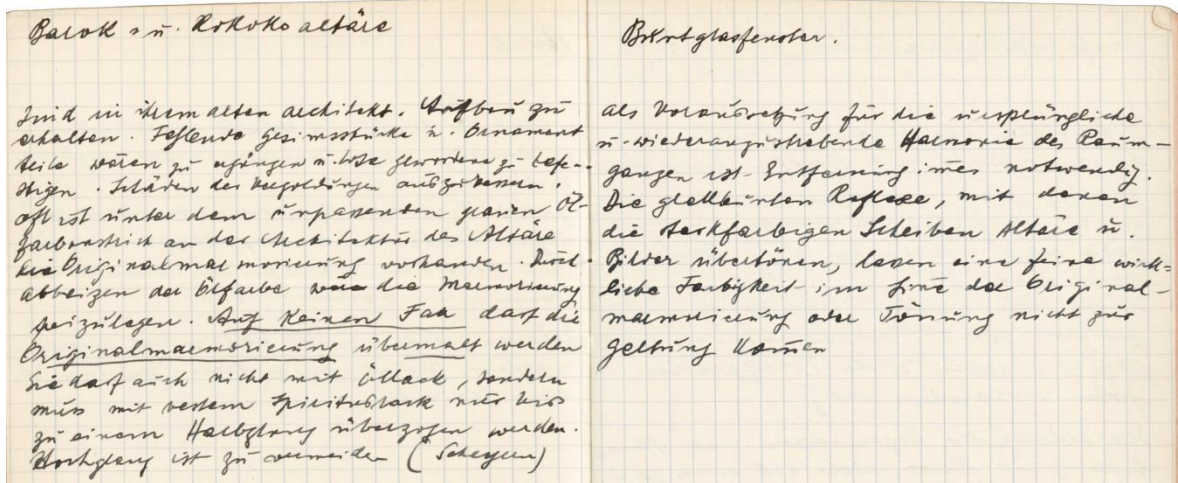 Barok- u. Rokoko altäre
Sind in ihrem alten architekt. Aufbau zu
erhalten. Fehlende Gesimsstücke u. Ornament
teile wären zu ergänzen u. lose gewordene zu befe-
stigen. Schäden der Vergoldungen auszubessern.
Oft ist unter dem unpassenden grauen Öl-
farbanstrich an der Architektur des Altars
die Originalmarmorierung vorhanden. Durch
abbeizen der Ölfarbe wäre die Marmorierung
freizulegen. Auf keinen Fall darf die
Originalmarmorierung übermalt werden
Sie darf auch nicht mit Öllack, sondern
muss mit bestem Spirituslack nur bis
zu einem Halbglanz überzogen werden.
Hochglanz ist zu vermeiden (Scheyern)
Buntglasfenster.
als Voraussetzung für die ursprüngliche
u. wiederanzustrebende Harmonie des Raum-
ganzen ist Entfernung notwendig.
Die grellbunten Reflexe, mit denen
die starkfarbigen Scheiben Altäre u.
Bilder übertönen, lassen eine feine wirk-
liche Farbigkeit im Sinne der Original-
marmorierung oder Tönung nicht zur
Geltung kommen